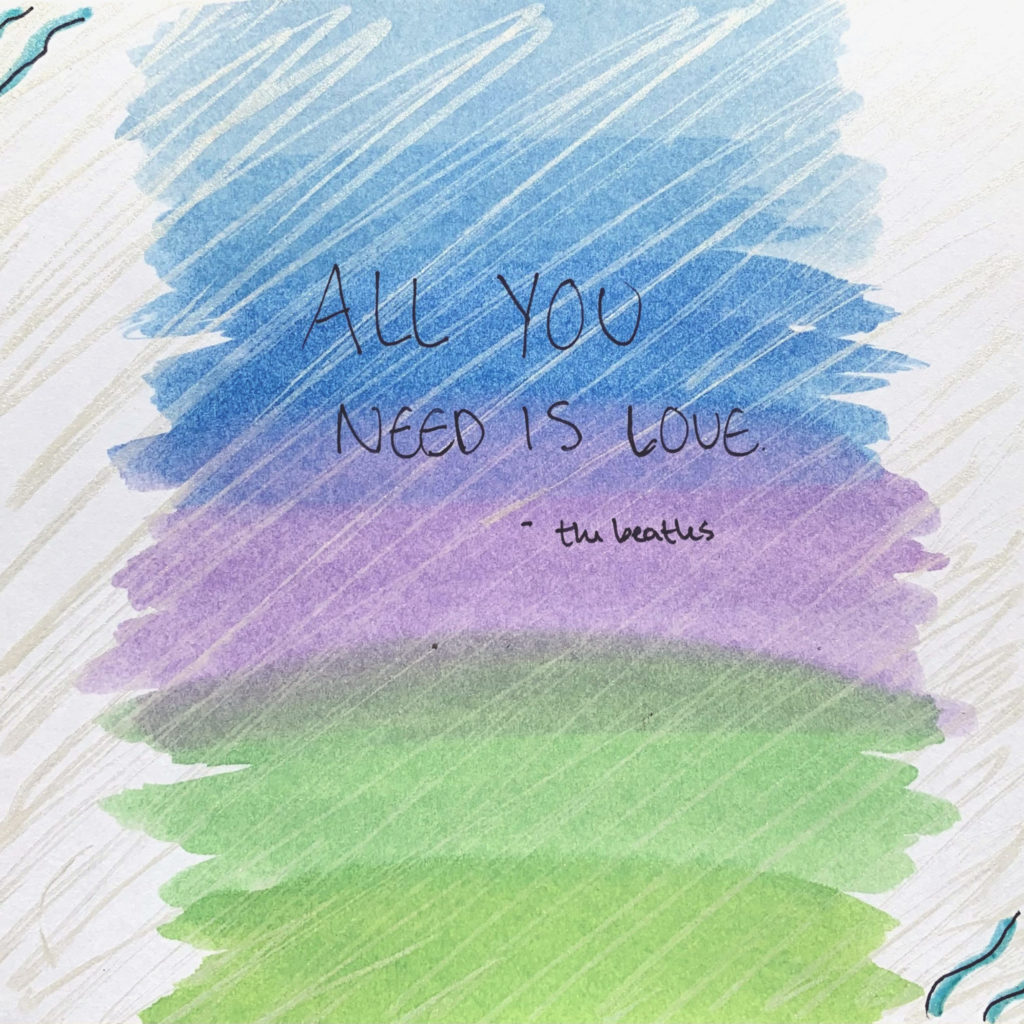 ALL YOU
NEED IS LOVE.
- the beatles